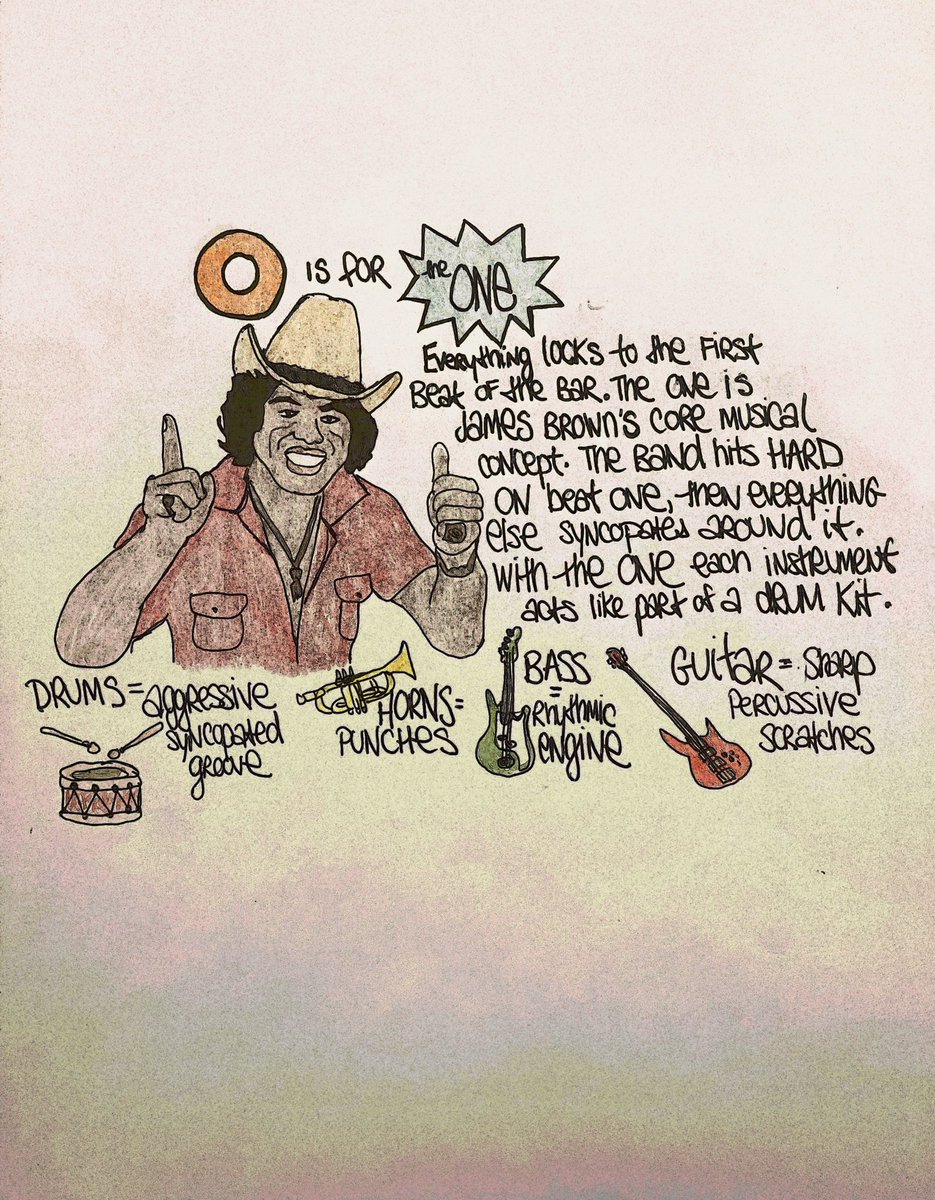 O is for the ONE
Everything locks to the first
Beat of the Bar. The one is
James Brown's core musical
concept. The Band hits HARD
on beat one, then everything
else syncopates around it.
With the ONE each instrument
acts like part of a drum kit.
DRUMS = aggressive
syncopated
groove
HORNS =
PUNCHES
BASS
=
Rhythmic
engine
Guitar = Sharp
Percussive
scratches